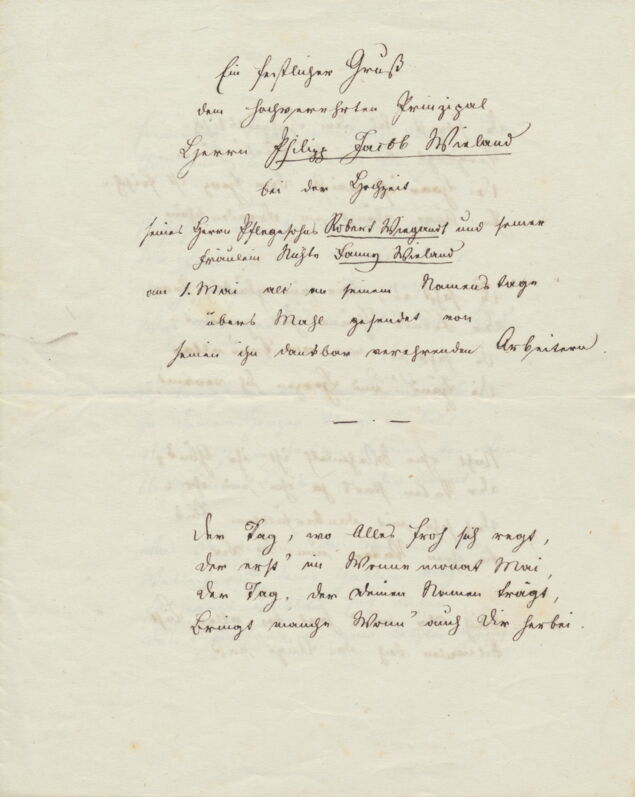 Ein festlicher Gruß
dem hochverehrten Prinzipal
Herrn Philipp Jacob Wieland
bei der Hochzeit
seines Herrn Pflegesohns Robert Wiegandt und seiner
Fräulein Nichte Fanny Wieland
am 1. Mai als an seinem Namenstage
übers Mahl gesendet von
seinen ihn dankbar verehrenden Arbeitern.
Der Tag, wo Alles froh sich regt,
Der erst' im Wonnemonat Mai,
Der Tag, der deinen Namen trägt,
Bringt manche Wonn' auch Dir herbei.